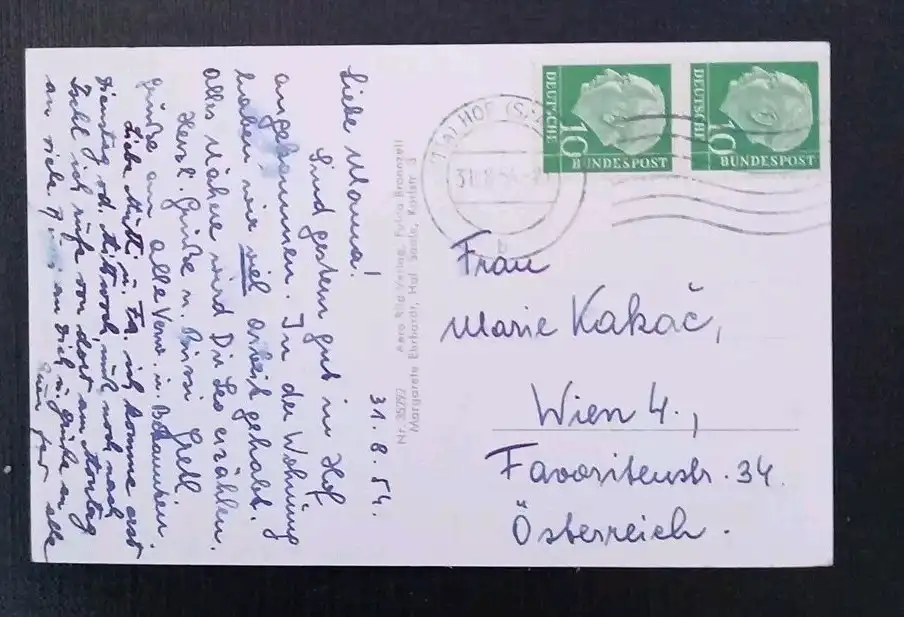 31.8.54.
Liebe Mama!
Sind gestern gut in Hof
angekommen. In der Wohnung
haben wir viel Arbeit gehabt.
Alles Nähere wird Dir Leo erzählen.
Herzl. Grüße u. Bussi Gretl.
Grüße an alle Verw. u. Bekannten.
Liebe Mutti u. Fa. ich komme erst
Dienstag od. Mittwoch, muß noch nach
Ischl ich rufe von dort am Montag
an viele an Dich u. Grüße an
alle
Nr. 35792 Aero Bild Verlag, Fulda Bronnzell
Margarete Ehrhardt, Hof Saale, Karlstr. 3
HOF (SAALE)
31.8.54
b
DEUTSCHE
10
BUNDESPOST
DEUTSCHE
10
BUNDESPOST
Frau
Marie Kakač,
Wien 4.,
Favoritenstr. 34.
Österreich.